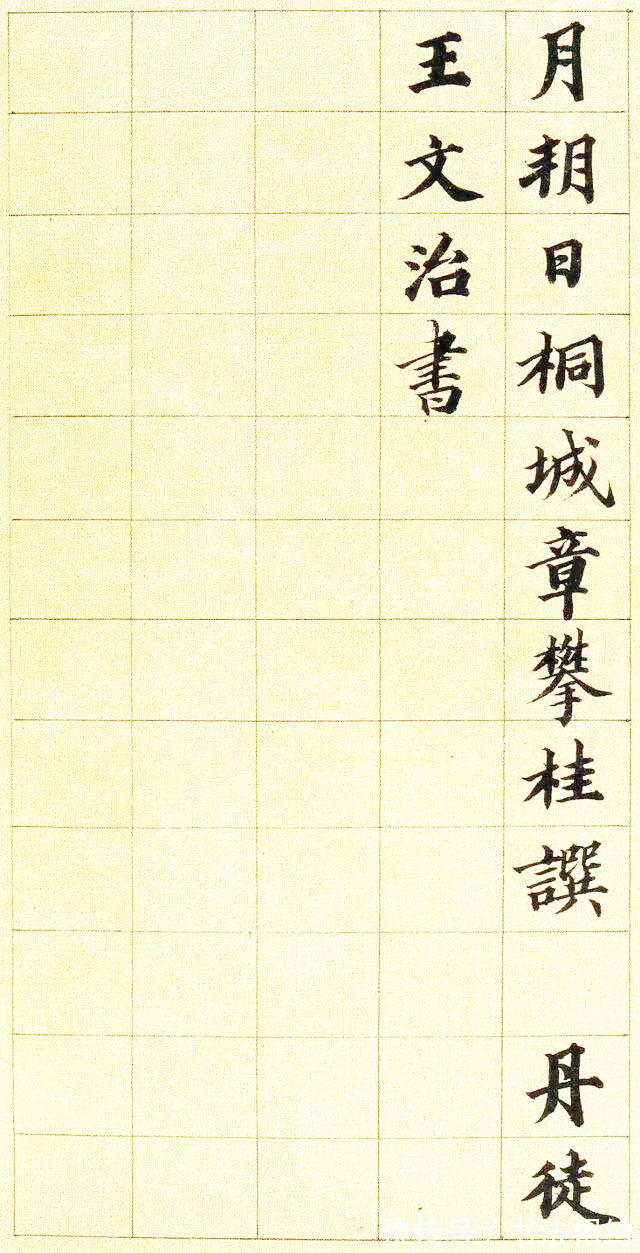 月朝日桐城章攀桂譔　丹徒
王文治書